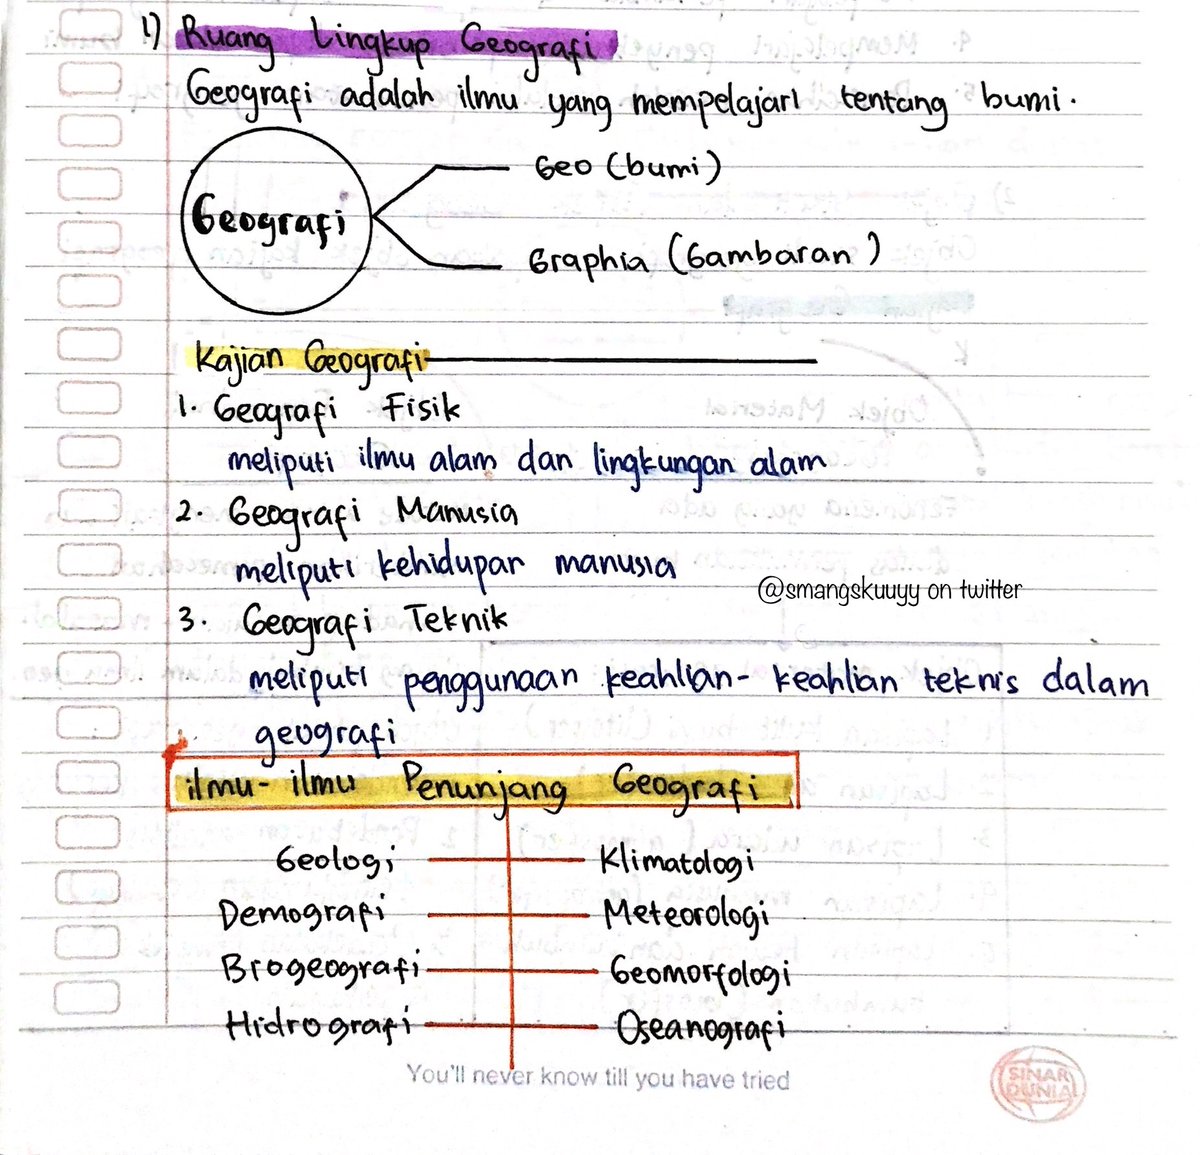 1) Ruang Lingkup Geografi
Geografi adalah ilmu yang mempelajari tentang bumi.
Geografi
Geo (bumi)
Graphia (Gambaran)
Kajian Geografi
1. Geografi Fisik
meliputi ilmu alam dan lingkungan alam
2. Geografi Manusia
meliputi kehidupar manusia
@smangskuuyy on twitter
3. Geografi Teknik
meliputi penggunaan keahlian-keahlian teknis dalam
geografi
ilmu-ilmu Penunjang Geografi
Geologi Klimatologi
Demografi Meteorologi
Brogeografi Geomorfologi
Hidrografi Oseanografi
You'll never know till you have tried
SINAR
DUNIA